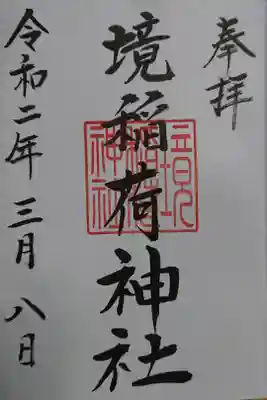 奉拝
境稲荷神社
令和二年三月八日
境稲荷神社